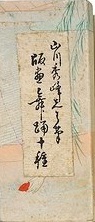 山川秀峰先生筆
版画舞踊十種